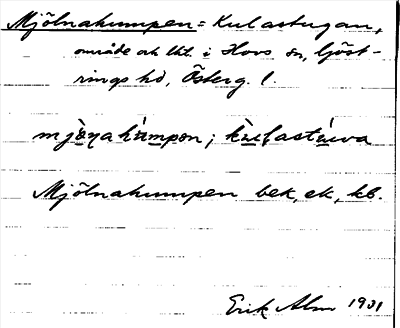 Mjölnakumpen = Kulastugan,
område ock lht. i Hovs sn, Göst-
rings hd, Österg. l.
mjöṇakùmpon; kùlastúwa
Mjölnakumpen bek, ek, kb.
Erik Alm 1931